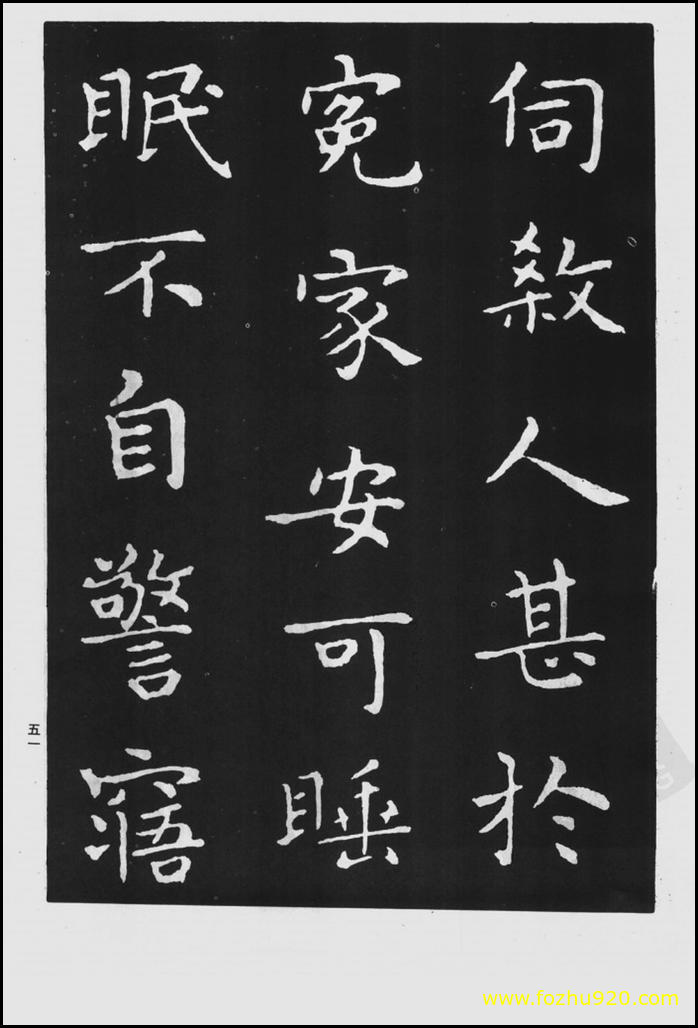 伺殺人甚於
冤家安可睡
眠不自警寤
五一
www.fozhu920.com